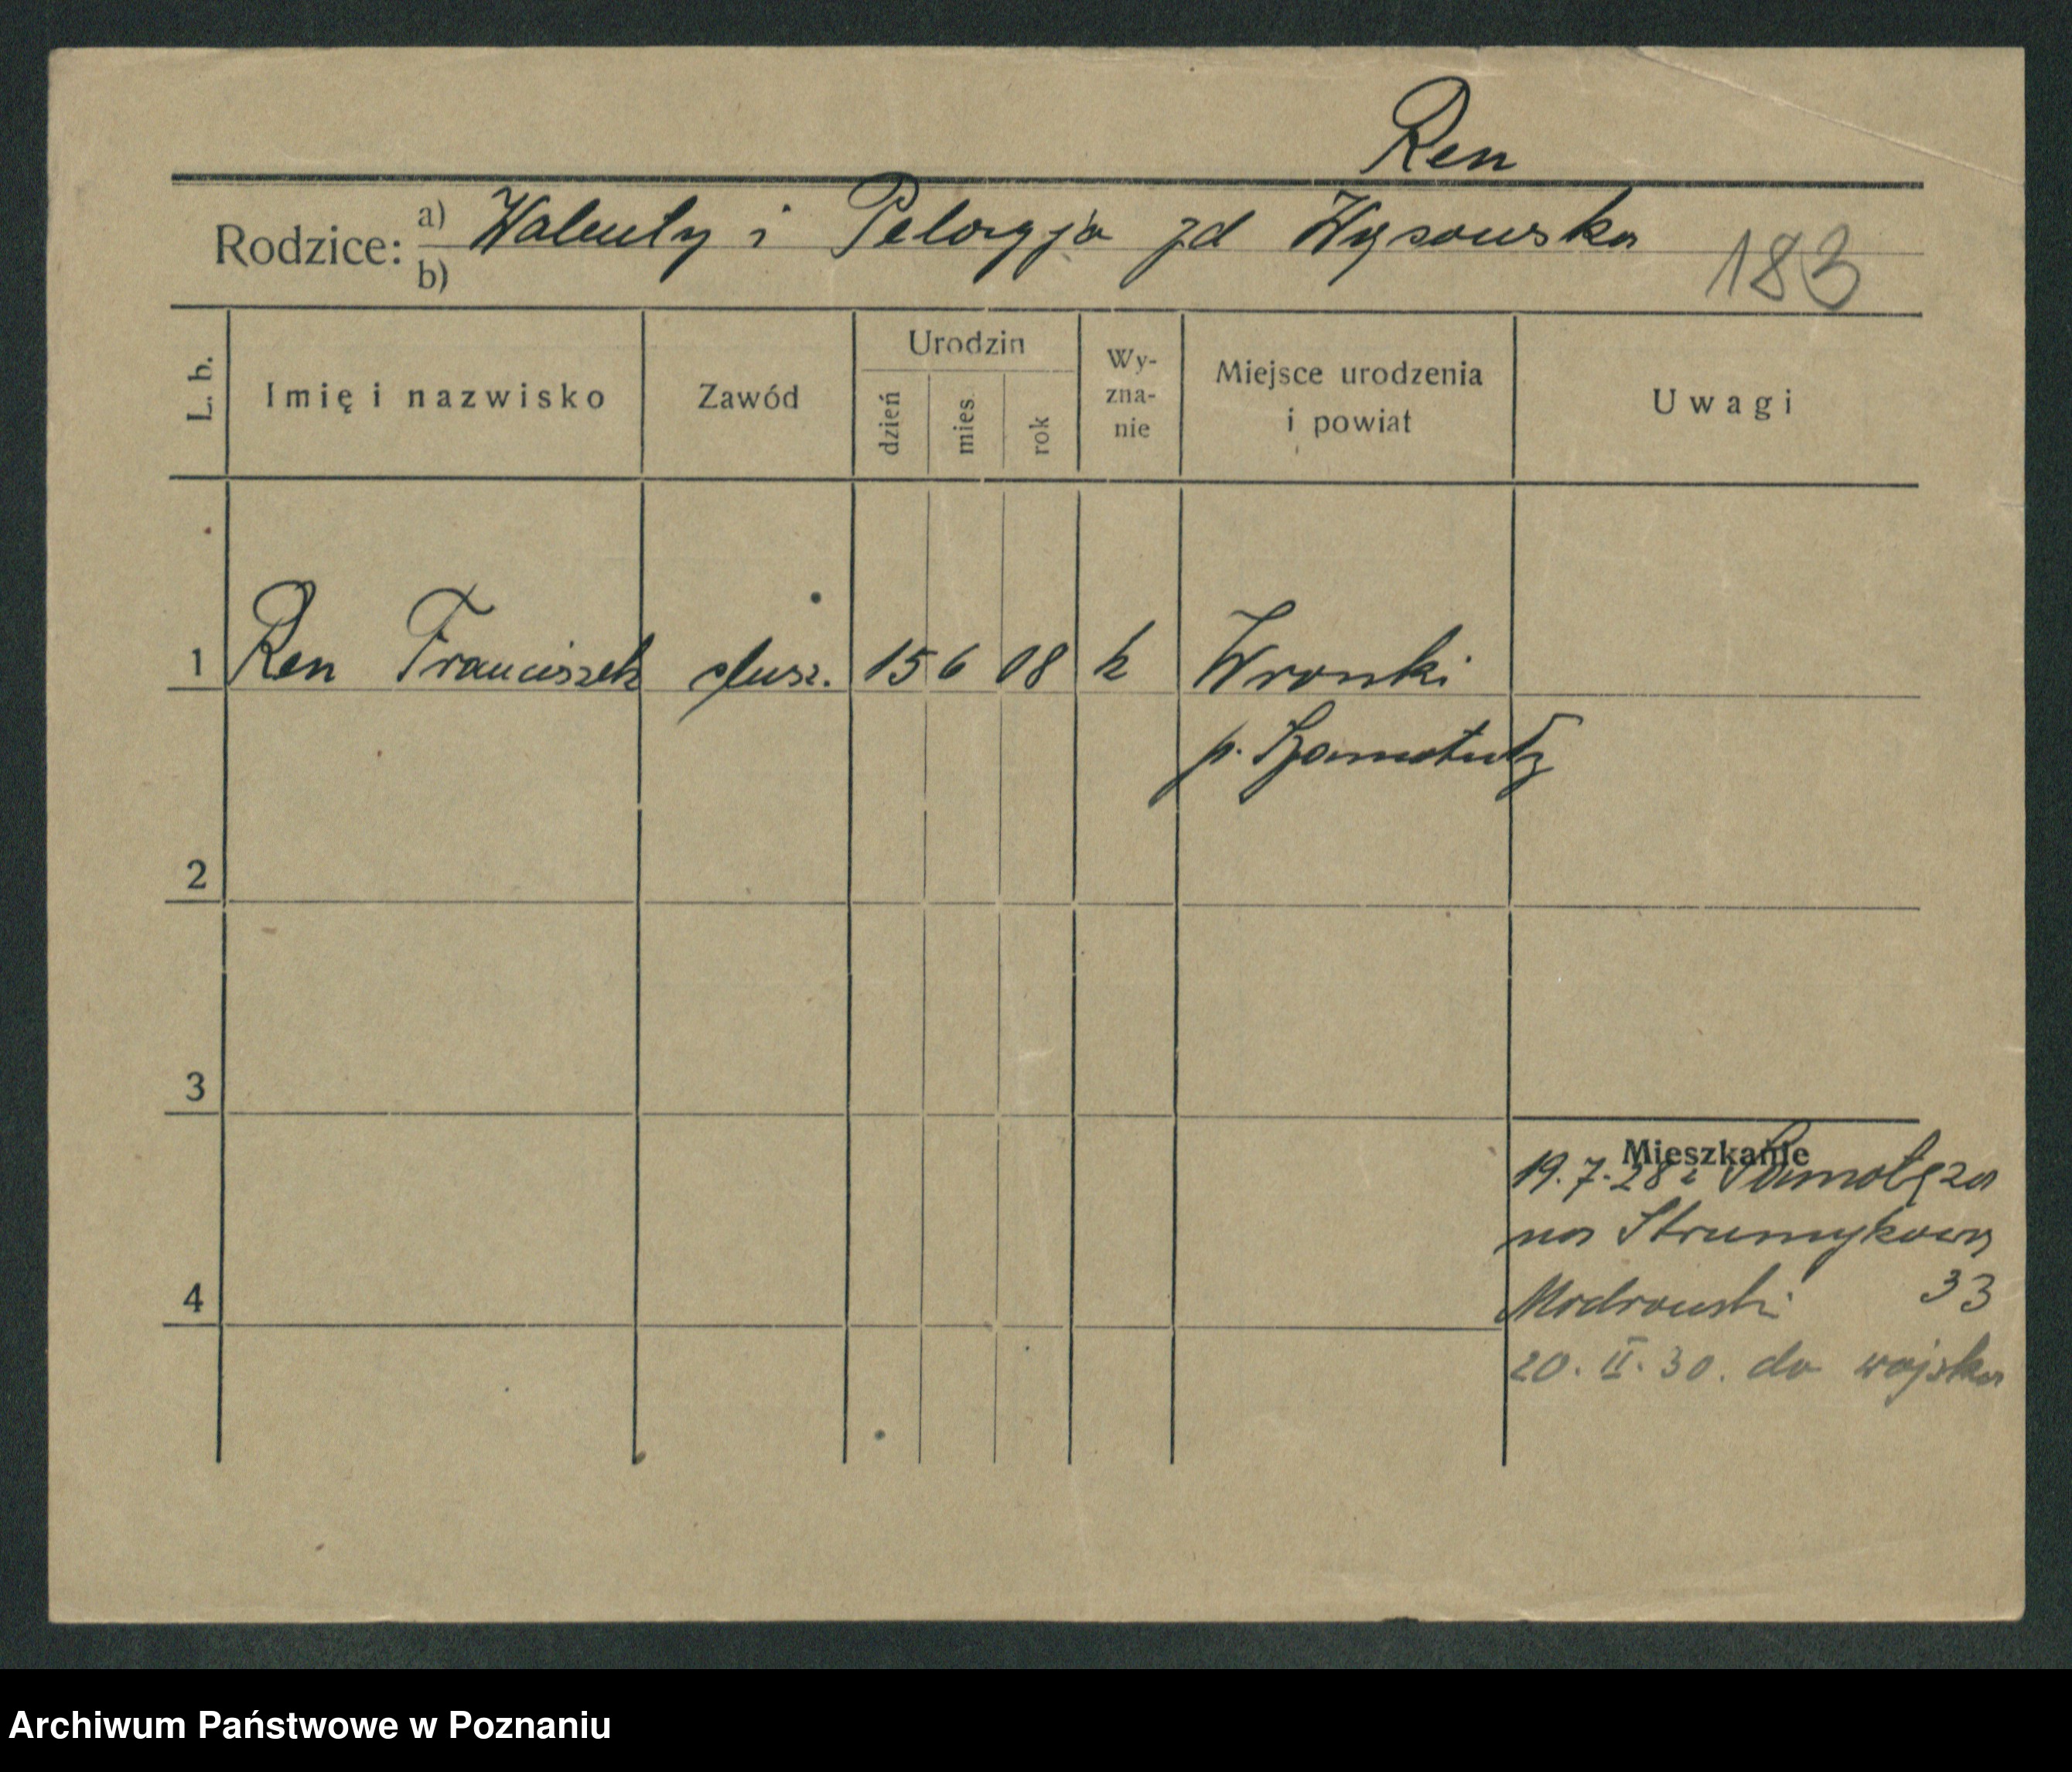 Ren
Rodzice: a) Walenty i Pelagja zd Wysowska
b)
183
L. b.
Imię i nazwisko
Zawód
Urodzin
dzień
mies.
rok
Wy-
zna-
nie
Miejsce urodzenia
i powiat
Uwagi
1 Ren Franciszek ślusz. 15 6 08 k Wronki
p. Szamotuły
2
3
4
Mieszkanie
19.7.28 z
na Strumykową
Modrowski 33
20. II. 30. do wojska
Archiwum Państwowe w Poznaniu